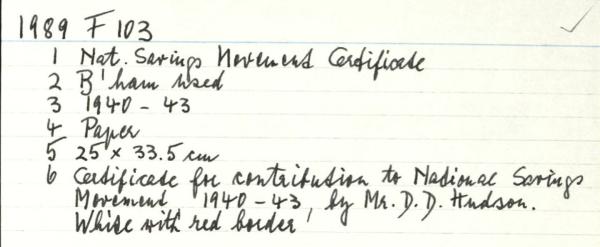 1989 F 103
1 Nat. Savings Movement Certificate
2 B'ham used
3 1940 - 43
4 Paper
5 25 x 33.5 cm
6 Certificate for contribution to National Savings
Movement, 1940 - 43, by Mr. D.D. Hudson.
White with red border